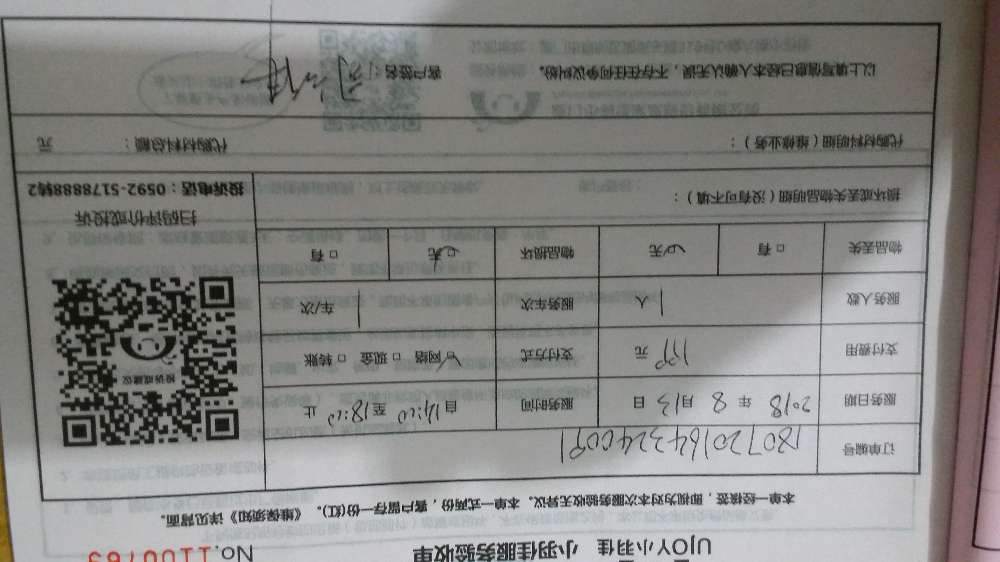 UJOY小羽佳 小羽佳服务验收单
No. 1100763
本单一经核签，即视为对本次服务验收无异议。本单一式两份，客户留存一份(红)。《维保须知》详见背面。
订单编号 1807201643240091
服务日期 2018 年 8 月 13 日 服务时间 自 14:00 至 18:00 止
支付费用 199 元 支付方式 ☑网络 □现金 □转账
服务人数 1 人 服务车次 1 车/次
物品丢失 □有 ☑无 物品损坏 ☑无 □有
投诉或建议
扫码评价或投诉
投诉电话：0592-5178888转2
损坏或丢失物品明细（没有可不填）：
代购材料明细（维修业务）： 代购材料总额： 元
以上填写信息已经本人确认无误，不存在任何争议纠纷。 客户签名：